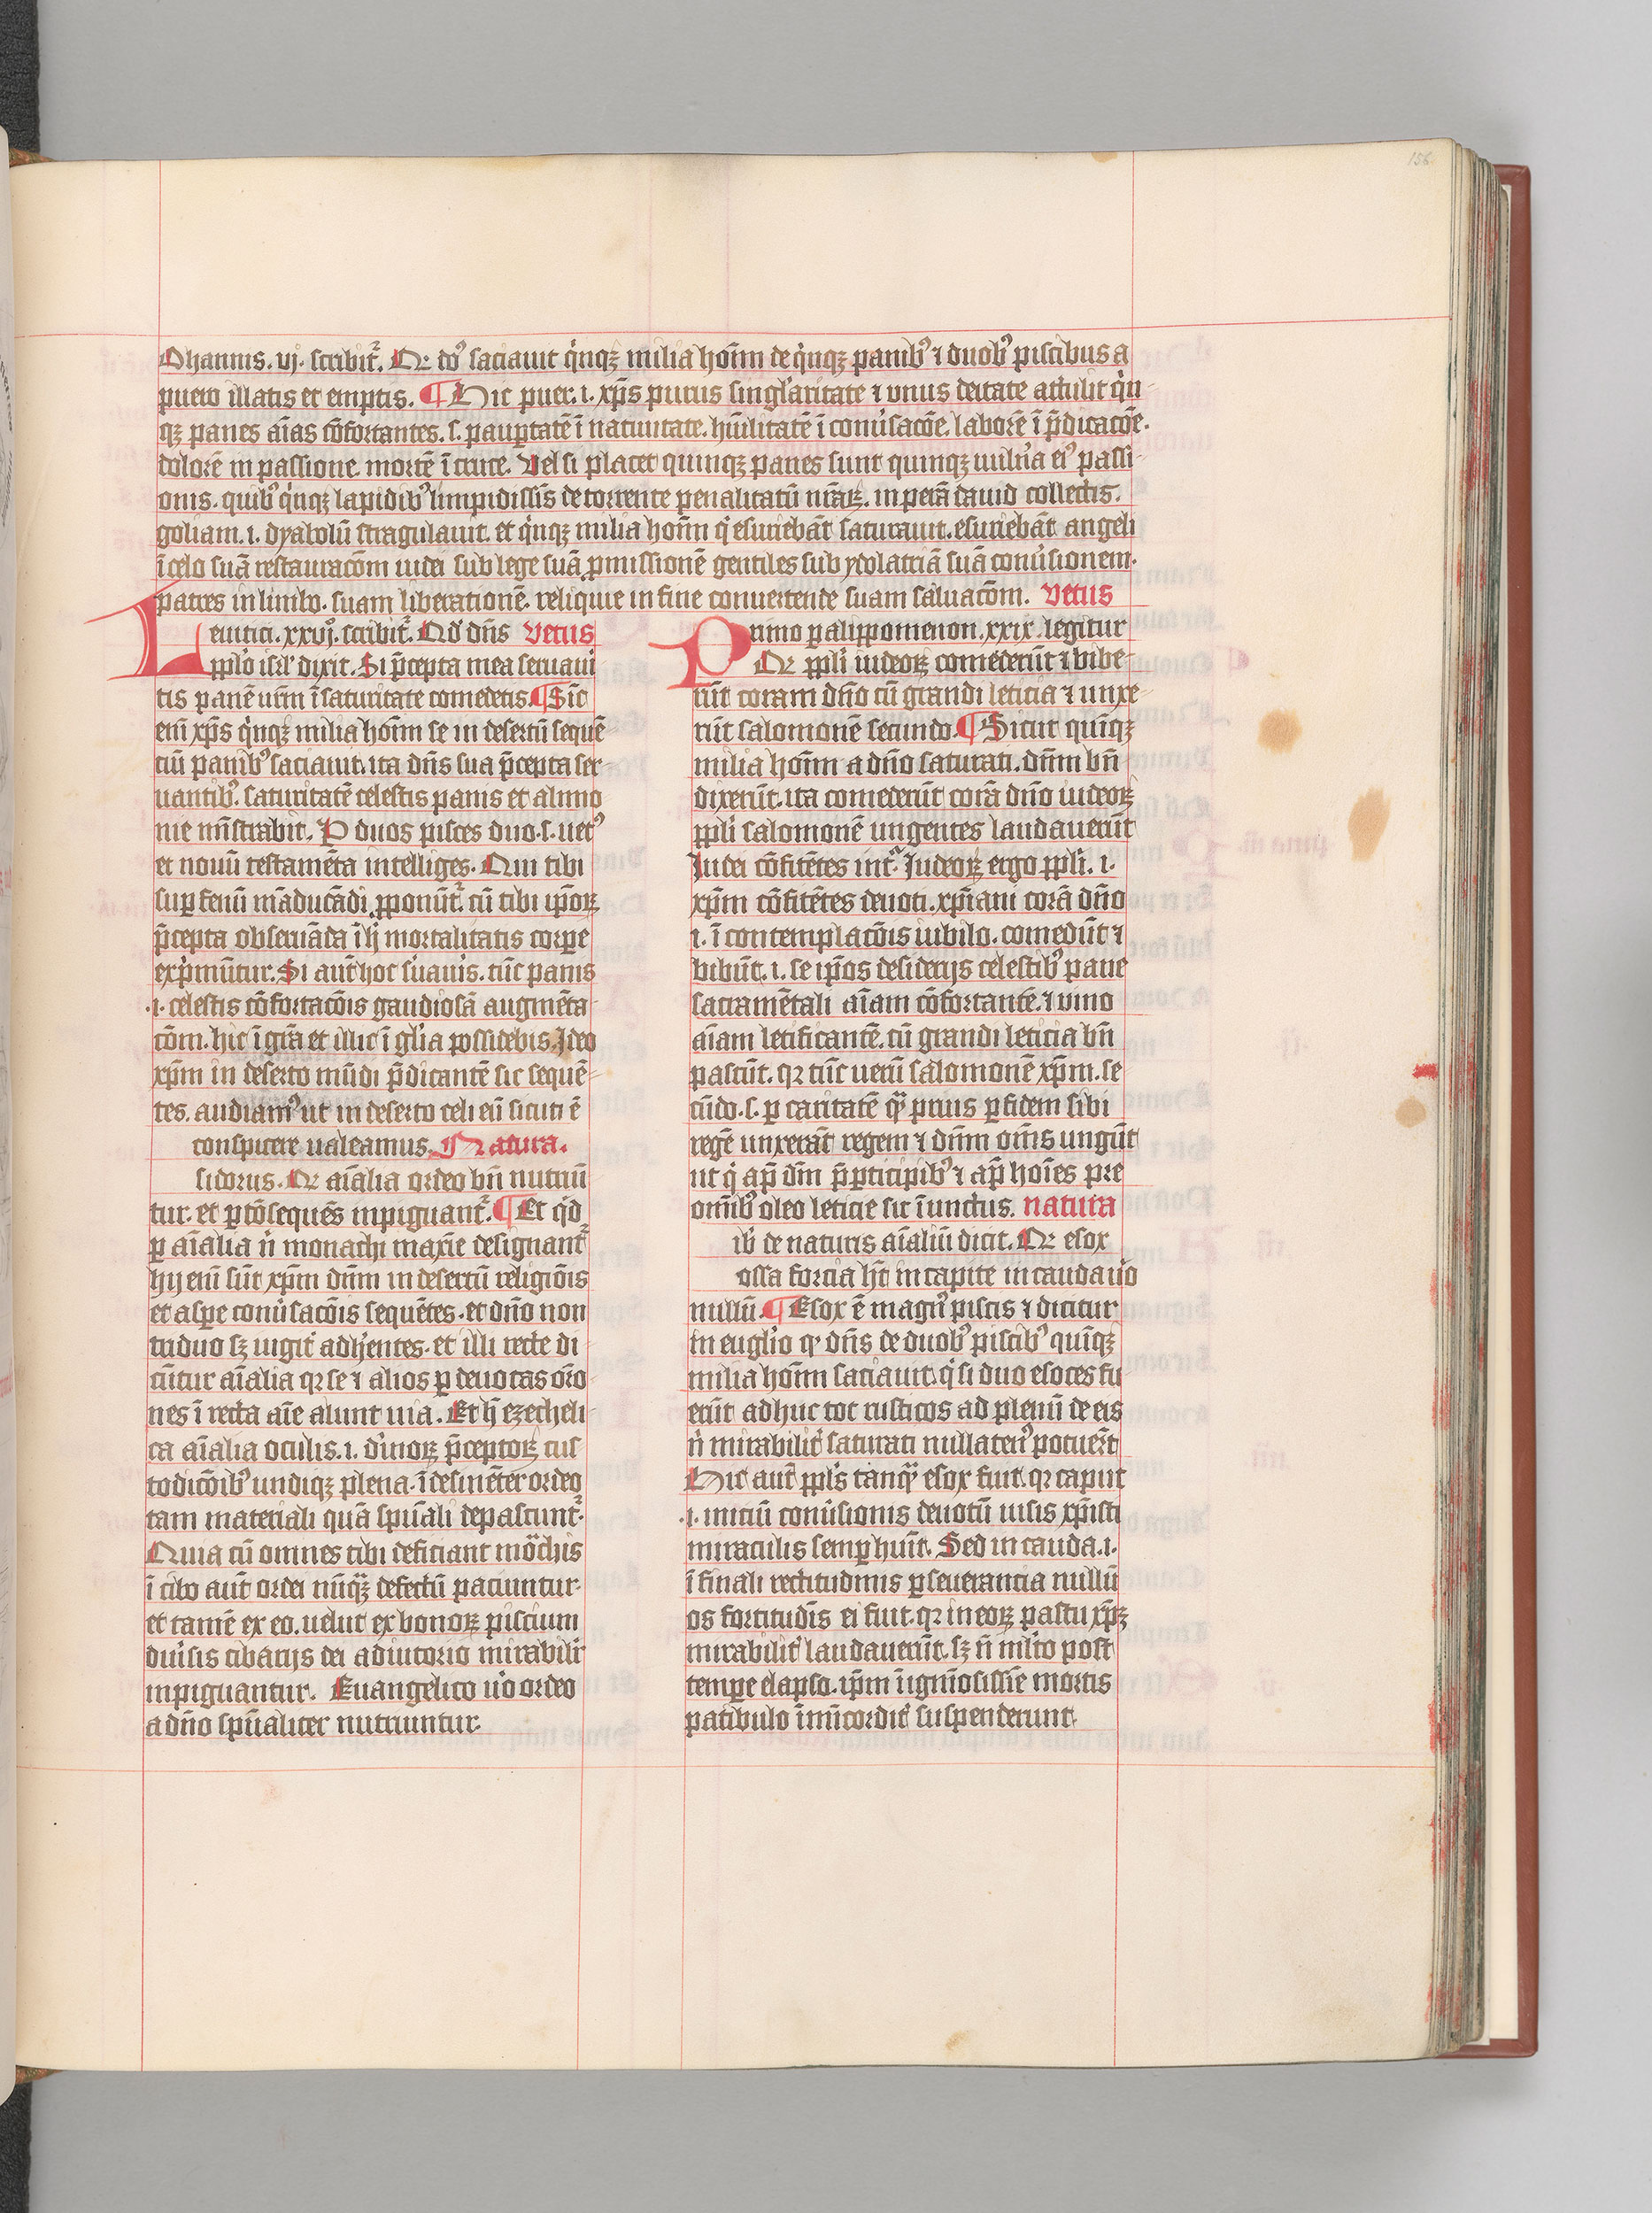 156
Ohannis. vj. scribit᷑. Qr do᷒ saciauit q̇nqꝫ milia hoīm de q̇nqꝫ panib᷒ ⁊ duob᷒ piscibus a
puero illatis et emptis. ¶ Hic puer .i. xp̄s purus singl'aritate ⁊ vnus deitate attulit q̇n
qꝫ panes aīas cōfortantes. s. pauꝑtatē ī natiuitate. hūilitatē ī conu'sacōe. laborē ī p̄dicacōe.
dolorē in passione mortē ī cruce. Vel si placet quinqꝫ panes sunt quinqꝫ uuln'a ei᷒ passi
onis. quib᷒ q̇nqꝫ lapidib᷒ limpidissīs de torrente penalitatū nr̄aꝝ. in perā dauid collectis.
goliam .i. dyabolū stragulauit. et q̇nqꝫ milia hoīm q̇ esuriebāt saturauit. esuriebāt angeli
ī celo suā restauracōm iudei sub lege suā ꝓmissionē gentiles sub ydolatriā suā conu'sionem.
patres in limbo. suam liberationē. reliquie in fine conuertende suam saluacōm. Vetus
Leuitici. xxvj. scribit᷑. Qd' dn̄s Vetus
ppl'o isrl' dixit. Si p̄cepta mea seruaui
tis panē ur̄m ī saturitate comedetis. ¶ Sic̄
eni xp̄s q̇nqꝫ milia hoīm se in desertū sequē
ciū panib᷒ saciauit. ita dn̄s sua p̄cepta ser
uantib᷒. saturitatē celestis panis et alimo
nie mīstrabit. P duos pisces duo. s. uet᷒
et nouū testamēta intelliges. Qui tibi
suꝑ fenū māducādi ꝓponūt᷑. cū tibi ip̄oꝝ
p̄cepta obseruāda ī hj mortalitatis corꝑe
exp̄mūtur. Si aut̄ hoc s'uaūis. tūc panis
.i. celestis cōfortacōis gaudiosā augmēta
cōm. hic ī gr̄a et illic ī gl'ia possidebis. Ideo
xp̄m in deserto mūdi p̄dicantē sic sequē
tes. audiam᷒ ut in deserto celi eū sicuti ē
conspicere ualeamus. Natura.
sidorus. Qr aīalia ordeo bn̄ nutriū
tur. et ꝑ cōsequēs inpiguant᷑. ¶ Et q̇d
ꝑ aīalia n̄ monachi maxīe designant᷑
hij eni sūt xp̄m dn̄m in desertū religiōis
et asꝑe conu'sacōis sequētes. et dn̄o non
triduo sꝫ iugit' adh'entes. et illi recte di
cūtur aīalia qr se ⁊ alios ꝑ deuotas or̄o
nes ī recta aīe alunt uia. Et hj ezecheli
ca aīalia oculis .i. diuīoꝝ p̄ceptoꝝ cus
todicōib᷒ undiqꝫ plena. ī desinēter ordeo
tam materiali quā spūali depascunt᷑.
Quia cū omnes cibi deficiant mōchis
ī cibo aut̄ ordei nūqꝫ defectū paciuntur.
et tamē ex eo. uelut ex bonoꝝ piscium
diu'sis cibarijs dei adiutorio mirabilit'
inpiguantur. Euangelico u'o ordeo
a dn̄o spūaliter nutriuntur.
Primo ꝑalippomenon. xxix. legitur
Qr ppl'i iudeoꝝ comederūt ⁊ bibe
rūt coram dn̄o cū grandi leticia ⁊ unxe
rūt salomonē secundo. ¶ Sicut quīqꝫ
milia hoīm a dn̄o saturati. dn̄m bn̄
dixerūt. ita comederūt corā dn̄o iudeoꝝ
ppl'i salomonē ungentes laudauerūt
Judei cōfitētes int᷑. Judeoꝝ ergo ppl'i. i.
xp̄m cōfitētes deuoti. xp̄iani corā dn̄o
.i. ī contemplacōis iubilo. comedūt ⁊
bibūt. i. se ip̄os desiderijs celestib᷒ pane
sacramētali aīam cōfortante. ⁊ vino
aīam letificantē. cū grandi leticia bn̄
pascūt. qr tūc uerū salomonē xp̄m. se
cūdo. s. ꝑ caritatē qᷓ prius ꝑ fidem sibi
regē unxerāt regem ⁊ dn̄m om̄s ungūt
ut q̇ ap̄ dm̄ p̄ ꝑticipib᷒ ⁊ ap̄ hoīes pre
omīb᷒ oleo leticie sic īunctus. natura
ib' de naturis aīaliū dicit. Qr esox
ossa forcia hr̄ in capite in cauda u'o
nullū. ¶ Esox ē magn᷒ piscis ⁊ dicitur
in euglīo q' dn̄s de duob᷒ piscib᷒ quīqꝫ
milia hoīm saciauit. q' si duo esoces fu
erūt adhuc tot rusticos ad plenū de eis
n̄ mirabilit' saturati nullaten᷒ potuer̄t
Hic aut̄ ppl's tanqᷓ esox fuit. qr caput
.i. iniciū conu'sionis deuotū uisis xp̄isti
miraculis semꝑ huīt. Sed in cauda .i.
ī finali rectitudinis ꝑseuerancia nullū
os fortitudīs ei fuit. qr in eoꝝ pastu xp̄ꝫ
mirabilit' laudauerūt. sꝫ n̄ m̄lto post
temꝑe elapso. ip̄m īignīosissīe mortis
patibulo īmīcordit' suspenderunt.